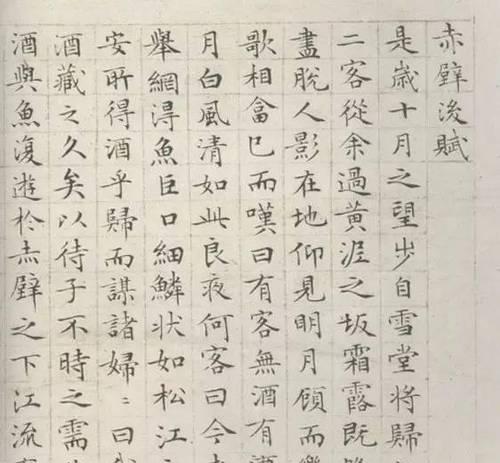 赤壁後賦
是歲十月之望步自雪堂將歸
二客從余過黃泥之坂霜露既
盡脫人影在地仰見明月顧而樂
歌相畣已而嘆曰有客無酒有酒
月白風清如此良夜何客曰今
舉網得魚巨口細鱗狀如松江
安所得酒乎歸而謀諸婦〻曰我
酒藏之久矣以待子不時之需
酒與魚復遊於赤壁之下江流